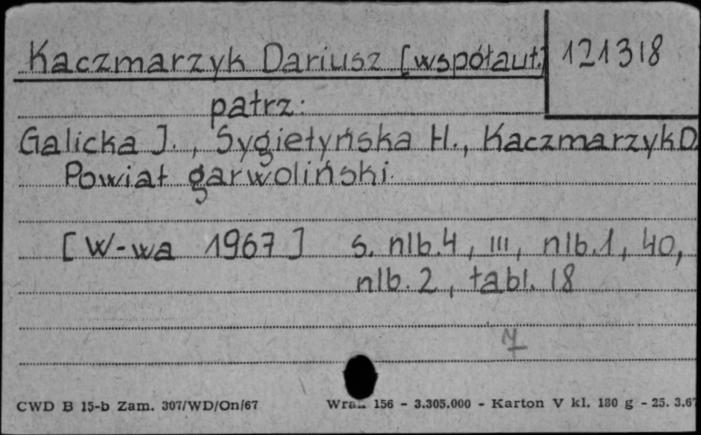 Kaczmarzyk Dariusz [współaut.] 121318
patrz:
Galicka J., Sygietyńska H., Kaczmarzyk D.
Powiat garwoliński.
[W-wa 1967] s. nlb. 4, III, nlb. 1, 40,
nlb. 2, tabl. 18
7
CWD B 15-b Zam. 307/WD/On/67 156 - 3.305.000 - Karton V kl. 180 g - 25. 3.67